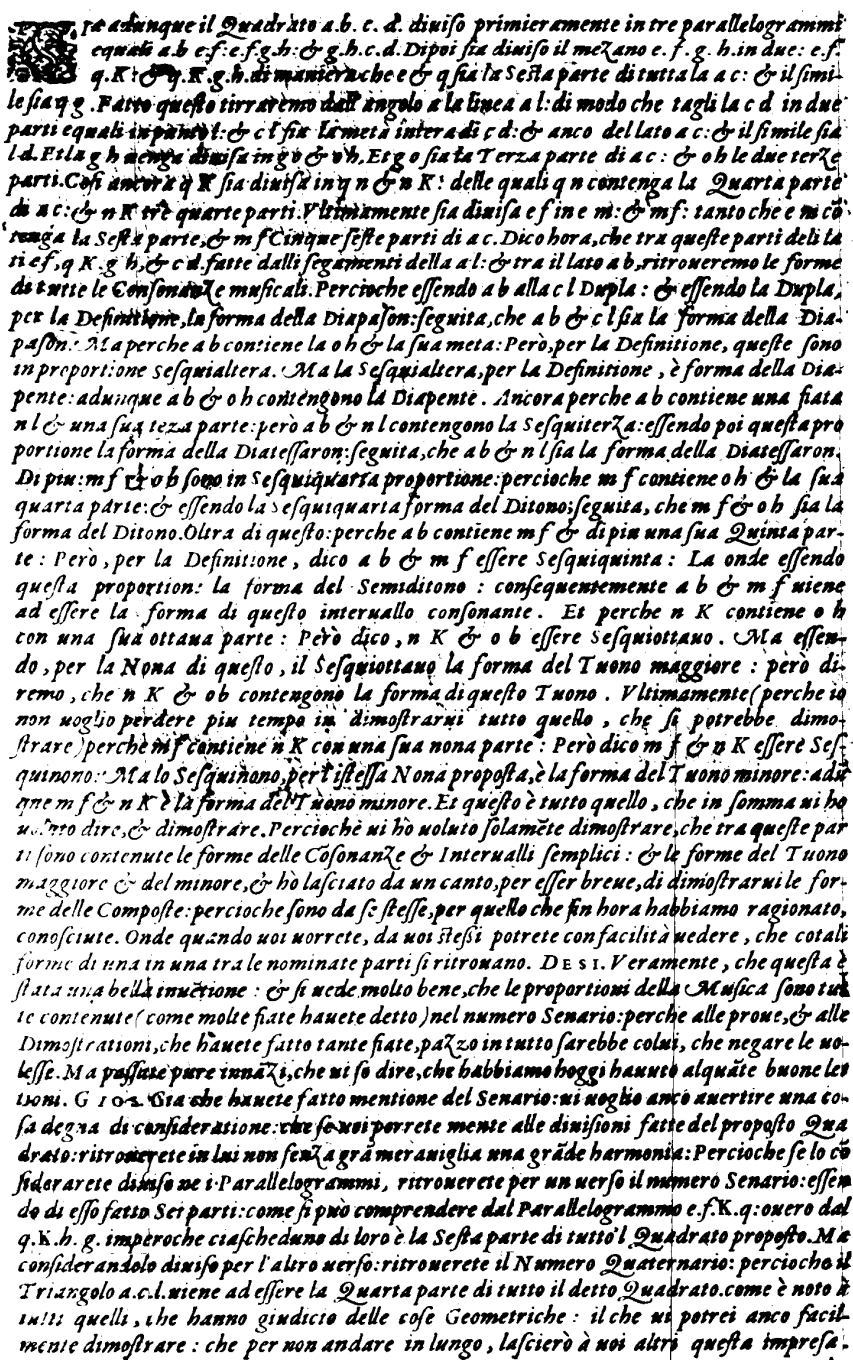 adunque il Quadrato a.b. c. d. diuiso primieramente in tre parallelogrammi
equali a.b e f: e.f.g.h: & g.h.c.d. Dipoi sia diuiso il mezano e. f. g. h. in due: e.f.
q.K: & q.K.g.h. di maniera che e & q sia la Sesta parte di tutta la a c: & il simi-
le sia q g. Fatto questo tirraremo dall'angolo a la linea a l: di modo che tagli la c d in due
parti equali in punto l: & c l sia la metà intera di c d: & anco del lato a c: & il simile sia
l d. Et la g h uenga diuisa in g o & o h. Et g o sia la Terza parte di a c: & o h le due terze
parti. Cosi ancora q K sia diuisa in q n & n K: delle quali q n contenga la Quarta parte
di a c: & n K tre quarte parti. Vltimamente sia diuisa e f in e m: & m f: tanto che e m cõ
tenga la Sesta parte, & m f Cinque seste parti di a c. Dico hora, che tra queste parti deli la
ti e f, q K. g h, & c d. fatte dalli segamenti della a l: & tra il lato a b, ritroueremo le forme
di tutte le Consonanze musicali. Percioche essendo a b alla c l Dupla: & essendo la Dupla,
per la Definitione, la forma della Diapason: seguita, che a b & c l sia la forma della Dia-
pason. Ma perche a b contiene la o h & la sua meta: Però, per la Definitione, queste sono
in proportione Sesquialtera. Ma la Sesquialtera, per la Definitione, è forma della Dia-
pente: adunque a b & o h contengono la Diapente. Ancora perche a b contiene una fiata
n l & una sua teza parte: però a b & n l contengono la Sesquiterza: essendo poi questa pro
portione la forma della Diatessaron: seguita, che a b & n l sia la forma della Diatessaron.
Di piu: m f & o h sono in Sesquiquarta proportione: percioche m f contiene o h & la sua
quarta parte: & essendo la Sesquiquarta forma del Ditono; seguita, che m f & o h sia la
forma del Ditono. Oltra di questo: perche a b contiene m f & di piu una sua Quinta par-
te: Però, per la Definitione, dico a b & m f essere Sesquiquinta: La onde essendo
questa proportion: la forma del Semiditono: consequentemente a b & m f uiene
ad essere la forma di questo interuallo consonante. Et perche n K contiene o h
con una sua ottaua parte: Però dico, n K & o b essere Sesquiottauo. Ma essen-
do, per la Nona di questo, il Sesquiottauo la forma del Tuono maggiore: però di-
remo, che n K & o b contengono la forma di questo Tuono. Vltimamente (perche io
non uoglio perdere piu tempo in dimostrarui tutto quello, che si potrebbe dimo-
strare) perche m f contiene n K con una sua nona parte: Però dico m f & n K essere Ses-
quinono: Ma lo Sesquinono, per l'istessa Nona proposta, è la forma del Tuono minore: adũ
que m f & n K è la forma del Tuono minore. Et questo è tutto quello, che in somma ui ho
uoluto dire, & dimostrare. Percioche ui hò uoluto solamẽte dimostrare, che tra queste par
ti sono contenute le forme delle Cõsonanze & Interualli semplici: & le forme del Tuono
maggiore & del minore, & hò lasciato da un canto, per esser breue, di dimostrarui le for-
me delle Composte: percioche sono da se stesse, per quello che fin hora habbiamo ragionato,
conosciute. Onde quando uoi uorrete, da uoi stessi potrete con facilità uedere, che cotali
forme di una in una tra le nominate parti si ritrouano. DESI. Veramente, che questa è
stata una bella inuẽtione: & si uede molto bene, che le proportioni della Musica sono tut
te contenute (come molte fiate hauete detto) nel numero Senario: perche alle proue, & alle
Dimostrationi, che hauete fatto tante fiate, pazzo in tutto sarebbe colui, che negare le uo-
lesse. Ma passate pure innãzi, che ui so dire, che habbiamo hoggi hauuto alquãte buone let
tioni. GIOS. Gia che hauete fatto mentione del Senario: ui uoglio anco auertire una co-
sa degna di consideratione: che se uoi porrete mente alle diuisioni fatte del proposto Qua
drato: ritrouerete in lui non senza grã merauiglia una grãde harmonia: Percioche se lo cõ
siderarete diuiso ne i Parallelogrammi, ritrouerete per un uerso il numero Senario: essen
do di esso fatto Sei parti: come si può comprendere dal Parallelogrammo e.f.K.q: ouero dal
q.K.h.g. imperoche ciascheduno di loro è la Sesta parte di tutto'l Quadrato proposto. Ma
considerandolo diuiso per l'altro uerso: ritrouerete il Numero Quaternario: percioche il
Triangolo a.c.l. uiene ad essere la Quarta parte di tutto il detto Quadrato. come è noto à
tutti quelli, che hanno giudicio delle cose Geometriche: il che ui potrei anco facil-
mente dimostrare: che per non andare in lungo, lascierò à uoi altri questa impresa.